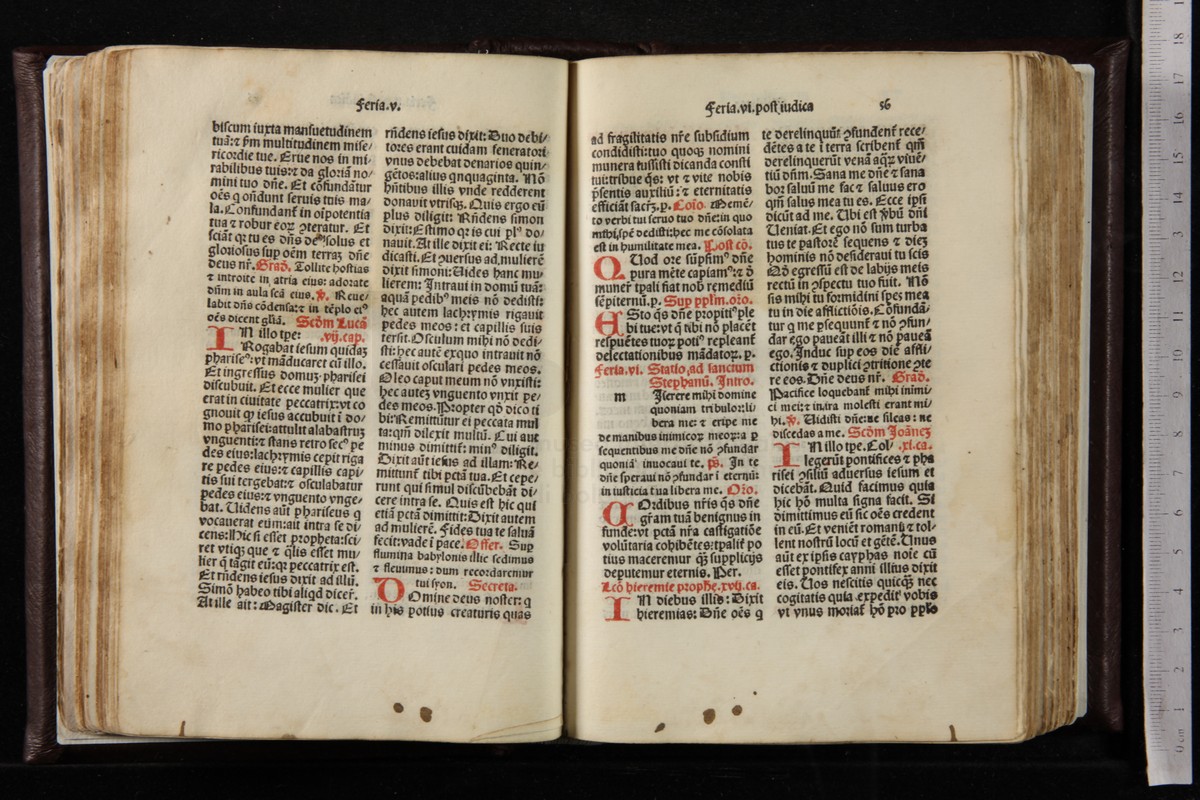 Feria.v.
biscum iuxta mansuetudinem
tuã:⁊ ẜm multitudinem mise/
ricordie tue. Erue nos in mi/
rabilibus tuis:⁊ da gloriã no/
mini tuo dñe. Et cõfundãtur
oẽs q ondunt seruis tuis ma/
la. Confundant̃ in oĩpotentia
tua ⁊ robur eoꝝ ↄteratur. Et
sciãt qꝛ tu es dñs deꝰ solus et
gloriosus sup oẽm terraꝫ dñe
deus nr̃. Grad̃. Tollite hostias
⁊ introite in atria eius: adorate
dñm in aula scã eius. ℣. Reue/
labit dñs cõdensa:⁊ in tẽplo eiꝰ
oẽs dicent gl̃iã. Scd̃m Lucã
IN illo tp̃e: .vij.cap.
Rogabat iesum quidaꝫ
phariseꝰ: vt mãducaret cũ illo.
Et ingressus domuꝫ pharisei
discubuit. Et ecce mulier que
erat in ciuitate peccatrix: vt co
gnouit ꝙ iesus accubuit ĩ do/
mo pharisei: attulit alabastrũ
vnguenti:⁊ stans retro secꝰ pe
des eius: lachrymis cepit riga
re pedes eius:⁊ capillis capi/
tis sui tergebat:⁊ osculabatur
pedes eius:⁊ vnguento vnge/
bat. Uidens aũt phariseus q
vocauerat eum: ait intra se di
cens: Hic si esset propheta: sci/
ret vtiqꝫ que ⁊ q̃lis esset mu/
lier q̃ tãgit eũ: qꝛ peccatrix est.
Et rñdens iesus dixit ad illũ.
Simõ habeo tibi aliqd̃ dicer̃.
At ille ait: Magister dic. Et
rñdens iesus dixit: Duo debi/
tores erant cuidam feneratori
vnus debebat denarios quin/
gẽtos: alius q̃nquaginta. Nõ
hñtibus illis vnde redderent
donauit vtrisqꝫ. Quis ergo eũ
plus diligit: Rñdens simon
dixit: Estimo qꝛ is cui plꝰ do/
nauit. At ille dixit ei: Recte iu
dicasti. Et ↄuersus ad mulierẽ
dixit simoni: Uides hanc mu
lierem: Intraui in domũ tuã:
aquã pedibꝰ meis nõ dedisti:
hec autem lachrymis rigauit
pedes meos: et capillis suis
tersit. Osculum mihi nõ dedi/
sti: hec autẽ exquo intrauit nõ
cessauit osculari pedes meos.
Oleo caput meum nõ vnxisti:
hec auteꝫ vnguento vnxit pe/
des meos. Propter qd̃ dico ti
bi: Remittũtur ei peccata mul
ta: qm̃ dilexit multũ. Cui aut̃
minus dimittit̃: minꝰ diligit.
Dixit aũt iesus ad illam: Re/
mittunt̃ tibi pctã tua. Et cepe/
runt qui simul discũbebãt di/
cere intra se. Quis est hic qui
etiã pctã dimittit: Dixit autem
ad mulierẽ. Fides tua te saluã
fecit: vade ĩ pace. Offer. Sup
flumina babylonis illic sedimus
⁊ fleuimus: dum recordaremur
tui syon. Secreta.
DOmine deus noster: q
in his potius creaturis quas
Feria.vi. post iudica 86
ad fragilitatis nr̃e subsidium
condidisti: tuo quoqꝫ nomini
munera iussisti dicanda consti
tui: tribue q̃s: vt ⁊ vite nobis
p̃sentis auxiliũ:⁊ eternitatis
efficiãt sacrꝫ. p. Cõio. Memẽ/
to verbi tui seruo tuo dñe: in quo
mihi spẽ dedisti: hec me cõsolata
est in humilitate mea. Post cõ.
QUod ore sũpsimꝰ dñe
pura mẽte capiamꝰ:⁊ d̃
muner̃ tp̃ali fiat nob̃ remediũ
sẽpiternũ. p. Sup pp̃lm. or̃o.
ESto q̃s dñe propitiꝰ ple
bi tue: vt q̃ tibi nõ placẽt
respuẽtes tuoꝝ potiꝰ repleant̃
delectationibus mãdatoꝝ. p.
Feria.vi. Statio ad sanctum
Stephanũ. Intro.
mIserere mihi domine
quoniam tribulor: li/
bera me: ⁊ eripe me
de manibus inimicoꝝ meoꝝ: a p̃
sequentibus me dñe nõ ↄfundar
quoniã inuocaui te. p̃s. In te
dñe speraui nõ ↄfundar ĩ eternũ:
in iusticia tua libera me. Or̃o.
COrdibus nr̃is q̃s dñe
gr̃am tuã benignus in
funde: vt pctã nr̃a castigatiõe
volũtaria cohibẽtes: tp̃alit̃ po
tius maceremur q̃ꝫ supplicijs
deputemur eternis. Per.
Lcõ hieremie prophe. xvij.ca.
IN diebus illis: Dixit
hieremias: Dñe oẽs q
te derelinquũt ↄfundent̃ rece/
dẽtes a te ĩ terra scribent̃ qm̃
derelinquerũt venã aqꝝ viuẽ/
tiũ dñm. Sana me dñe ⁊ sana
bor saluũ me fac ⁊ saluus ero
qm̃ salus mea tu es. Ecce ipsi
dicũt ad me. Ubi est v̓bũ dñi
Ueniat. Et ego nõ sum turba
tus te pastorẽ sequens ⁊ dieꝫ
hominis nõ desideraui tu scis
Qd̃ egressũ est de labijs meis
rectũ in ↄspectu tuo fuit. Nõ
sis mihi tu formidini spes mea
tu in die afflictiõis. Cõfundã/
tur q me p̃sequunt̃ ⁊ nõ ↄfun/
dar ego paueãt illi ⁊ nõ paueã
ego. Induc sup eos diẽ affli/
ctionis ⁊ duplici ↄtritione ↄte
re eos. Dñe deus nr̃. Grad̃.
Pacifice loquebant̃ mihi inimi/
ci mei:⁊ in ira molesti erant mi/
hi. ℣. Uidisti dñe: ne sileas: ne
discedas a me. Scd̃m Joãneꝫ
IN illo tp̃e. Col/ .xi.ca.
legerũt pontifices ⁊ pha
risei ↄsiliũ aduersus iesum et
dicebãt. Quid facimus quia
hic hõ multa signa facit. Si
dimittimus eũ sic oẽs credent
in eũ. Et veniẽt romani ⁊ tol/
lent nostrũ locũ et gẽtẽ. Unus
aũt ex ipsis cayphas noĩe cũ
esset pontifex anni illius dixit
eis. Uos nescitis quicqꝫ nec
cogitatis quia expedit vobis
vt vnus moriat̃ hõ pro pp̃lo